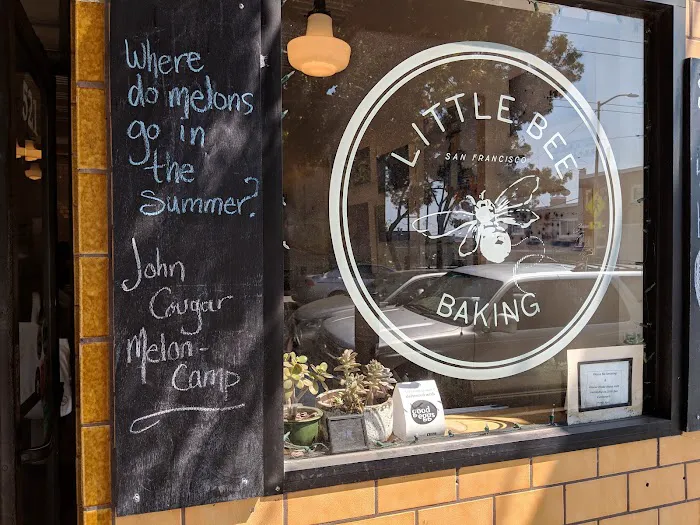 Where
do melons
go in
the
Summer?
John
Cougar
Melon-
Camp
LITTLE BEE
SAN FRANCISCO
BAKING
good
eggs
521